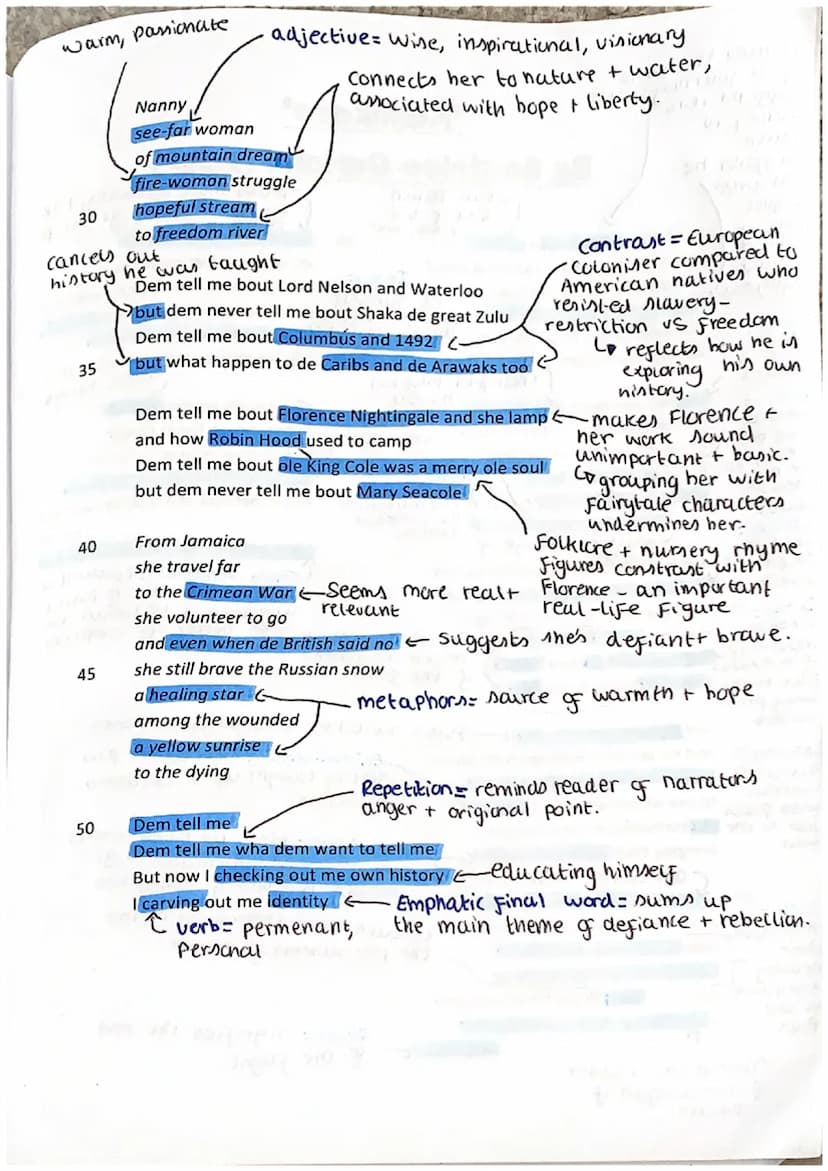 warm, passionate
adjective= wise, inspirational, visionary
connects her to nature + water,
associated with hope + liberty.
Nanny
see-far woman
of mountain dream
fire-woman struggle
30 hopeful stream
to freedom river
cancels out
history he was taught
Contrast = European
coloniser compared to
American natives who
resisted slavery-
restriction vs freedom
↳ reflects how he is
exploring his own
history.
Dem tell me bout Lord Nelson and Waterloo
but dem never tell me bout Shaka de great Zulu
Dem tell me bout Columbus and 1492
35 but what happen to de Caribs and de Arawaks too
Dem tell me bout Florence Nightingale and she lamp
and how Robin Hood used to camp
Dem tell me bout ole King Cole was a merry ole soul
but dem never tell me bout Mary Seacole
makes Florence +
her work sound
unimportant + basic.
↳ grouping her with
fairytale characters
undermines her.
Folklore + nursery rhyme
figures constrast with
Florence - an important
real-life figure
40 From Jamaica
she travel far
to the Crimean War
seems more real+
relevant
she volunteer to go
and even when de British said no
suggests shes defiant+ brave.
45 she still brave the Russian snow
a healing star
metaphors= source of warmth + hope
among the wounded
a yellow sunrise
to the dying
Repetition= reminds reader of narrators
anger + origional point.
50 Dem tell me
Dem tell me wha dem want to tell me
But now I checking out me own history
educating himself
I carving out me identity
Emphatic final word= sums up
the main theme of defiance + rebellion.
verb= permenant,
personal